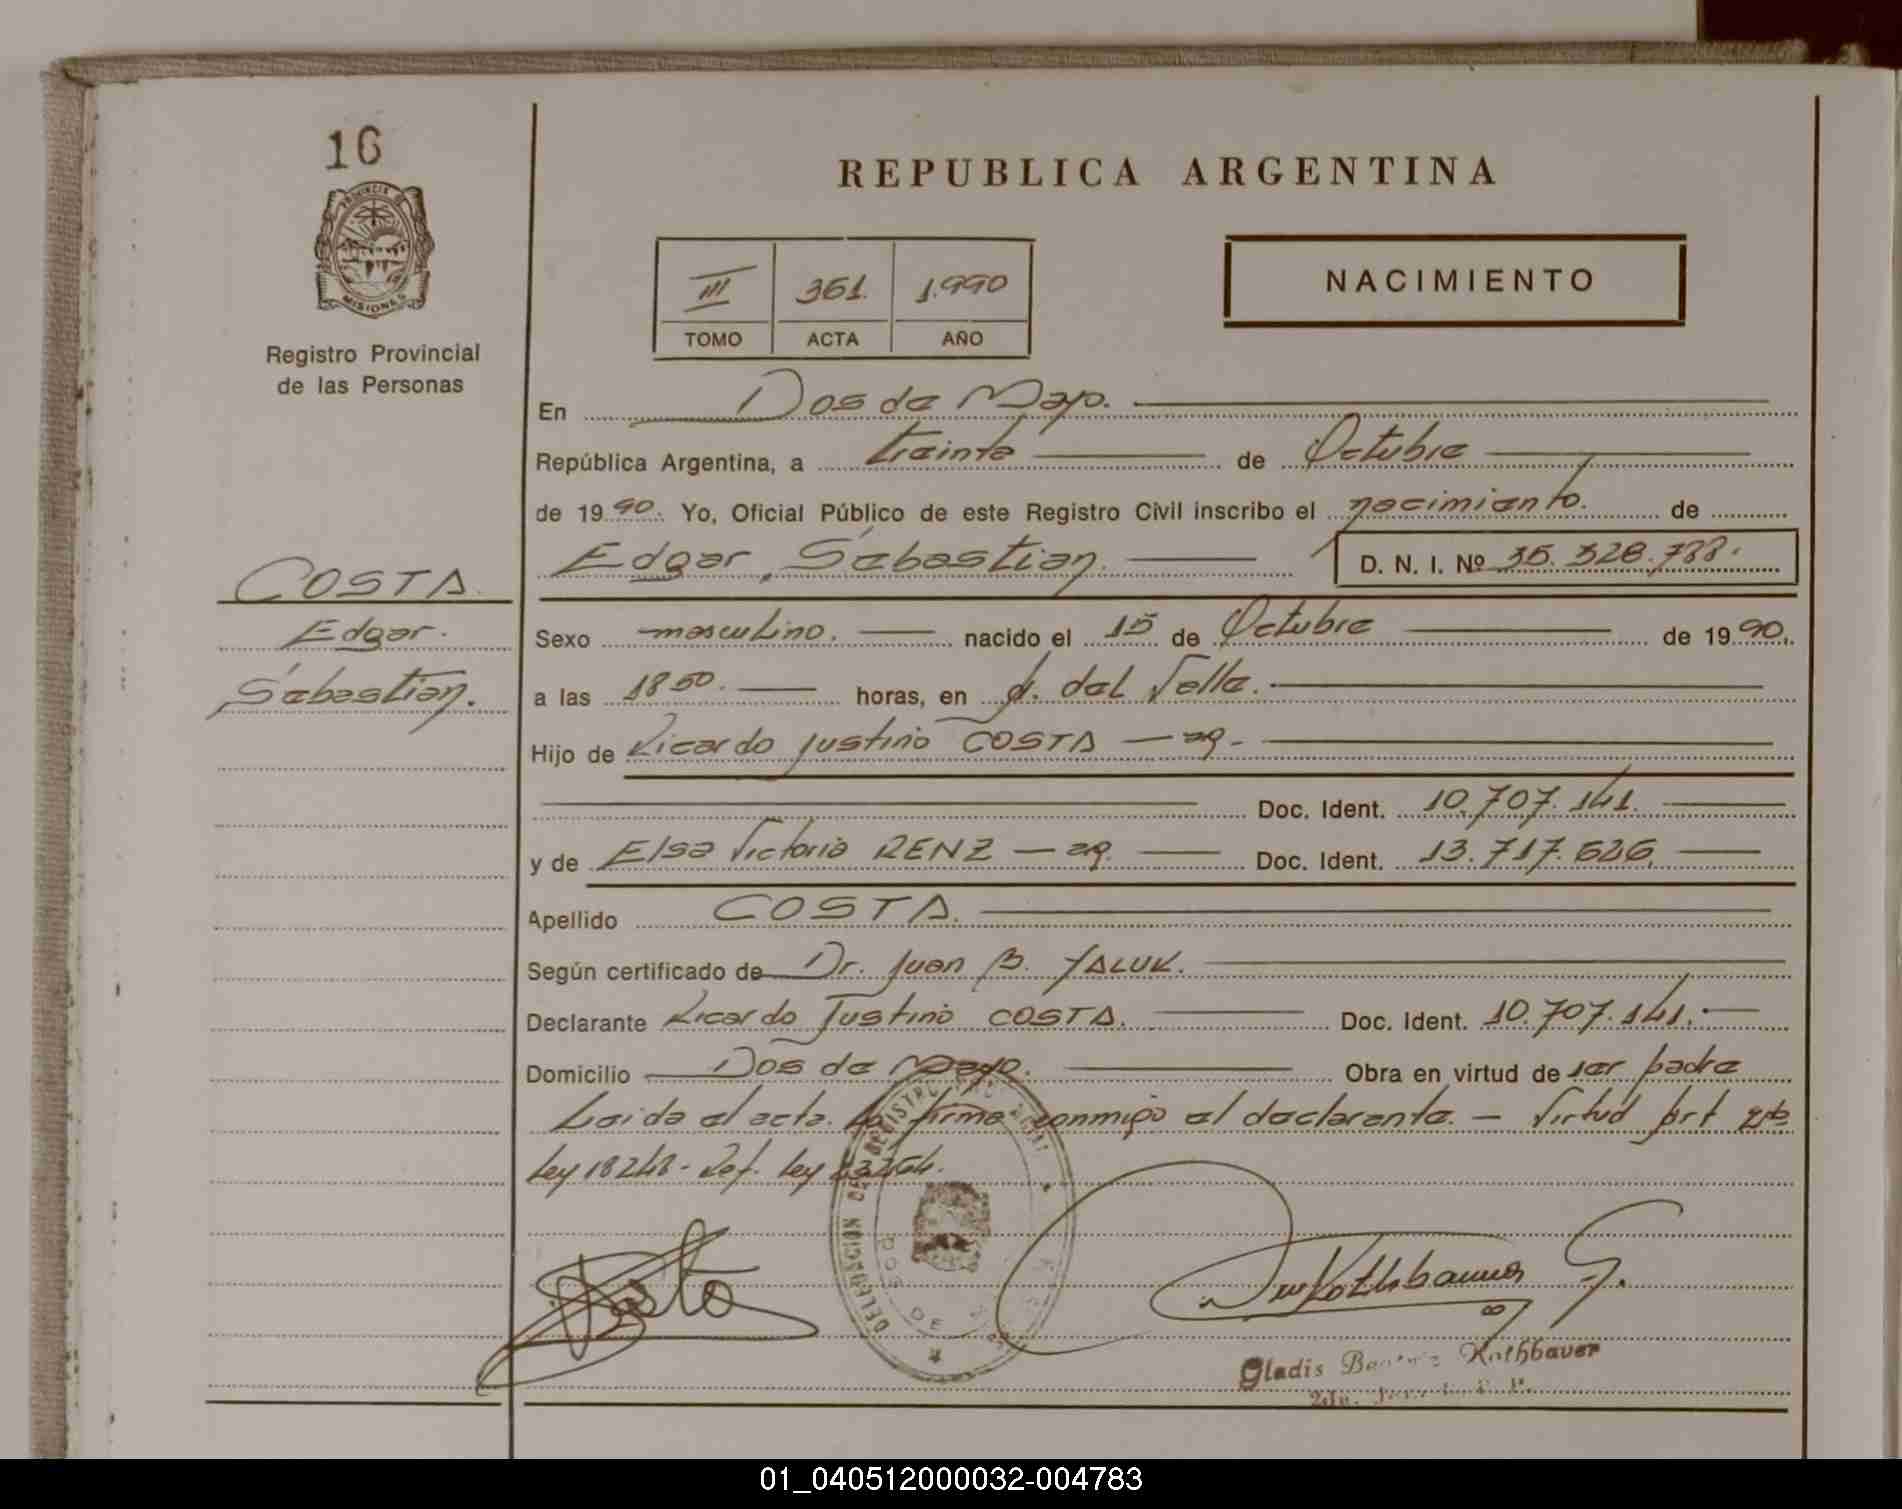 16
PROVINCIA DE
MISIONES
Registro Provincial
de las Personas
COSTA.
Edgar.
Sebastian.
REPUBLICA ARGENTINA
III 361. 1.990
TOMO ACTA AÑO
NACIMIENTO
En Dos de Mayo.
República Argentina, a treinta de Octubre
de 1990. Yo, Oficial Público de este Registro Civil inscribo el nacimiento. de
Edgar, Sebastian. D. N. I. Nº 35.328.788.
Sexo masculino. nacido el 15 de Octubre de 1990.
a las 18 50. horas, en A. del Valle.
Hijo de Ricardo Justino COSTA — ag.
Doc. Ident. 10.707.141.
y de Elsa Victoria RENZ — ag. Doc. Ident. 13.717.626.
Apellido COSTA.
Según certificado de Dr. Juan B. YALUK.
Declarante Ricardo Justino COSTA. Doc. Ident. 10.707.141.
Domicilio Dos de Mayo. Obra en virtud de ser padre
Leida el acta. La firma conmigo el declarante. — Virtud Art
Ley 18248 - Ref. Ley 23264.
DELEGACION DEL REGISTRO
DOS DE
Costa
Kothbauer G.
Gladis Kothbauer
01_040512000032-004783